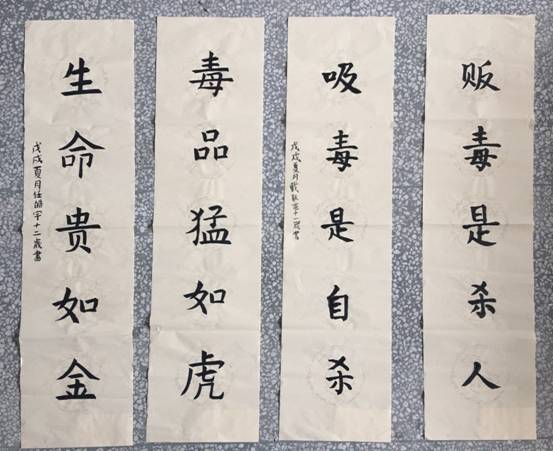 贩毒是杀人
吸毒是自杀
戊戌夏月十一歲書
毒品猛如虎
生命贵如金
戊戌夏月任宇十二歲書